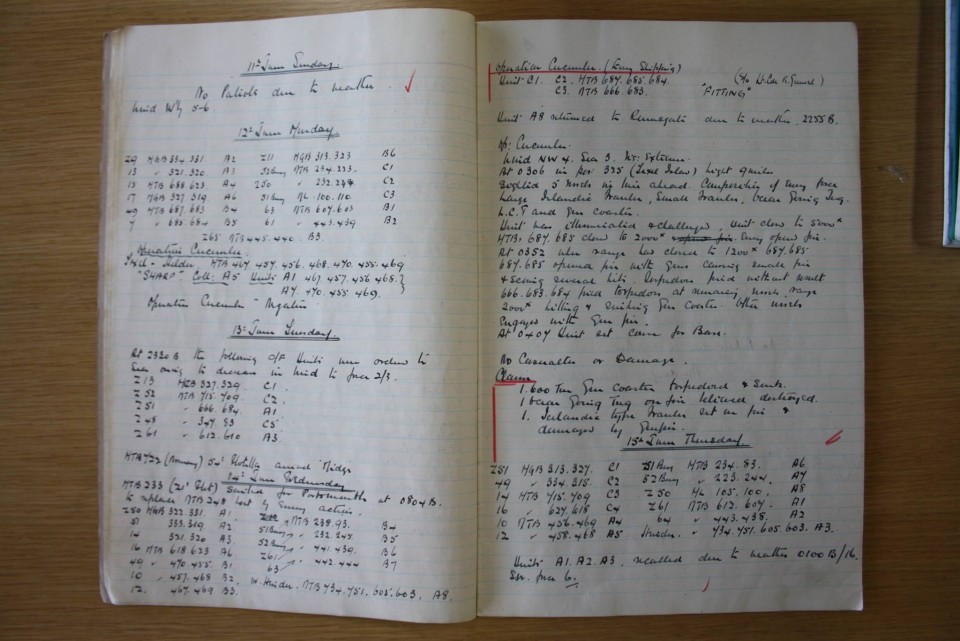 11th June Sunday.
No Patrols due to weather.
Wind Wly 5-6
12th June Monday
Z9 MGB 334.331 A2 Z11 MGB 313.323 B6
13 " 321.320 A3 52 Bury MTB 234.223. C1
15 MTB 688 623. A4 Z50 " 232.244 C2
17 MGB 327.319 A6 51 Bury ML 100.110 C3
49 MTB 687.683 B4 63 MTB 607.603 B1
7 " 685.684 B5 61 " 443.439 B2
Z65 MTB 445.440. B3
Operation Cucumber.
MTB 467 457. 456. 468. 470. 455. 469
"SHARP" A5 Units A1 467. 457. 456 468. }
A7. 470. 455. 469. }
Operation Cucumber Negative
13th June Tuesday.
At 2320 B the following Units were ordered to
Sea owing to decrease in Wind to force 2/3.
Z13 MGB 327.329. C1.
Z52 MTB 715.709. C2.
Z51 " 666.684. A1
Z48 " 347.83 C5
Z61 " 612.610 A3
MTB 722 54th Flotilla arrived Midge
14th June Wednesday
MTB 233 (21st Flot) sailed for Portsmouth at 0804 B.
to replace MTB 248 lost by Enemy action.
Z50 MGB 322.331. A1 MTB 238.93. B4
51 333.319 A2 51 Bury " 232.245. B5
14 321.320 A3 52 Bury " 441.439. B6
16 MTB 618 623 A6 Z61 " 442.444 B7
49 " 470.455 B1 63
10 " 457.468 B2.
12. 467.469 B3. MTB 734.751.605.603. A8.
Operation Cucumber. (Enemy Shipping)
Unit C1. C2 MTB 687.685.684.
C3. MTB 666.683. "FITTING"
Unit A8 returned to Ramsgate due to weather, 2255 B.
Op: Cucumber.
Wind NW 4. Sea 3. Extreme.
At 0306 in pos 325 (Texel Island) Light 9 miles
Sighted 5 vessels in line ahead. Comprising of Enemy force
Large Islandic Trawler, Small Trawler, Ocean Going Tug.
L.C.T and Gun coaster.
Unit was illuminated & challenged, Unit close to 5000x
MTBs 687.685 close to 2000x Enemy opened fire.
At 0352 when range has closed to 1200x 687.685
687.685 opened fire with Guns causing small fire
& scoring several hits. Torpedoes fired without result
666.683.684 fired torpedoes at remaining vessels range
2000x hitting & sinking Gun Coaster. Other vessels
Engaged with Gun fire.
At 0407 Unit set course for Base.
No Casualties or Damage.
Claims
1. 600 Ton Gun Coaster torpedoed & Sunk.
1 Ocean Going Tug on fire believed destroyed.
1. Icelandic type Trawler set on fire &
damaged by Gunfire.
15th June Thursday.
Z51 MGB 313.327. C1 51 Bury MTB 234.83. A6
49 " 334.315. C2 52 Bury " 223.244. A7
14 MTB 715.709 C3 Z50 ML 105.100. A8
16 " 624.618 C4 Z61 MTB 612.607. A1
10 MTB 456.469 A4 64 " 443.438. A2
12 " 458.468 A5 " 734.751.605.603. A3.
Units A1. A2. A3. recalled due to weather 0100 B/16.
Sea force 6.